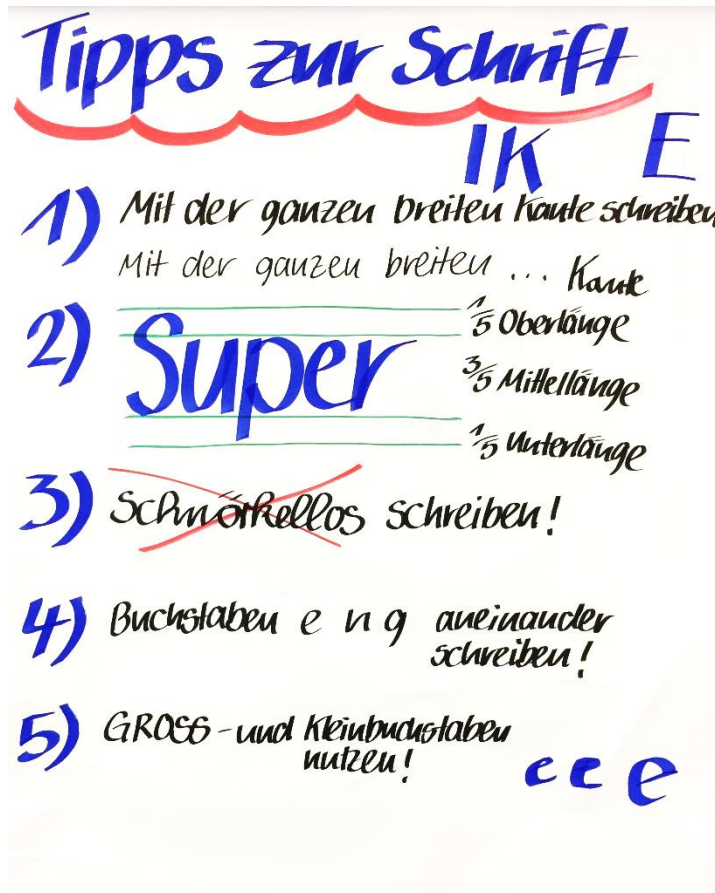 Tipps zur Schrift
IK E
1) Mit der ganzen breiten Kante schreiben
Mit der ganzen breiten ... Kante
2) Super
1/5 Oberlänge
3/5 Mittellänge
1/5 Unterlänge
3) Schnörkellos schreiben!
4) Buchstaben e n g aneinander
schreiben!
5) GROSS- und Kleinbuchstaben
nutzen!
e e e